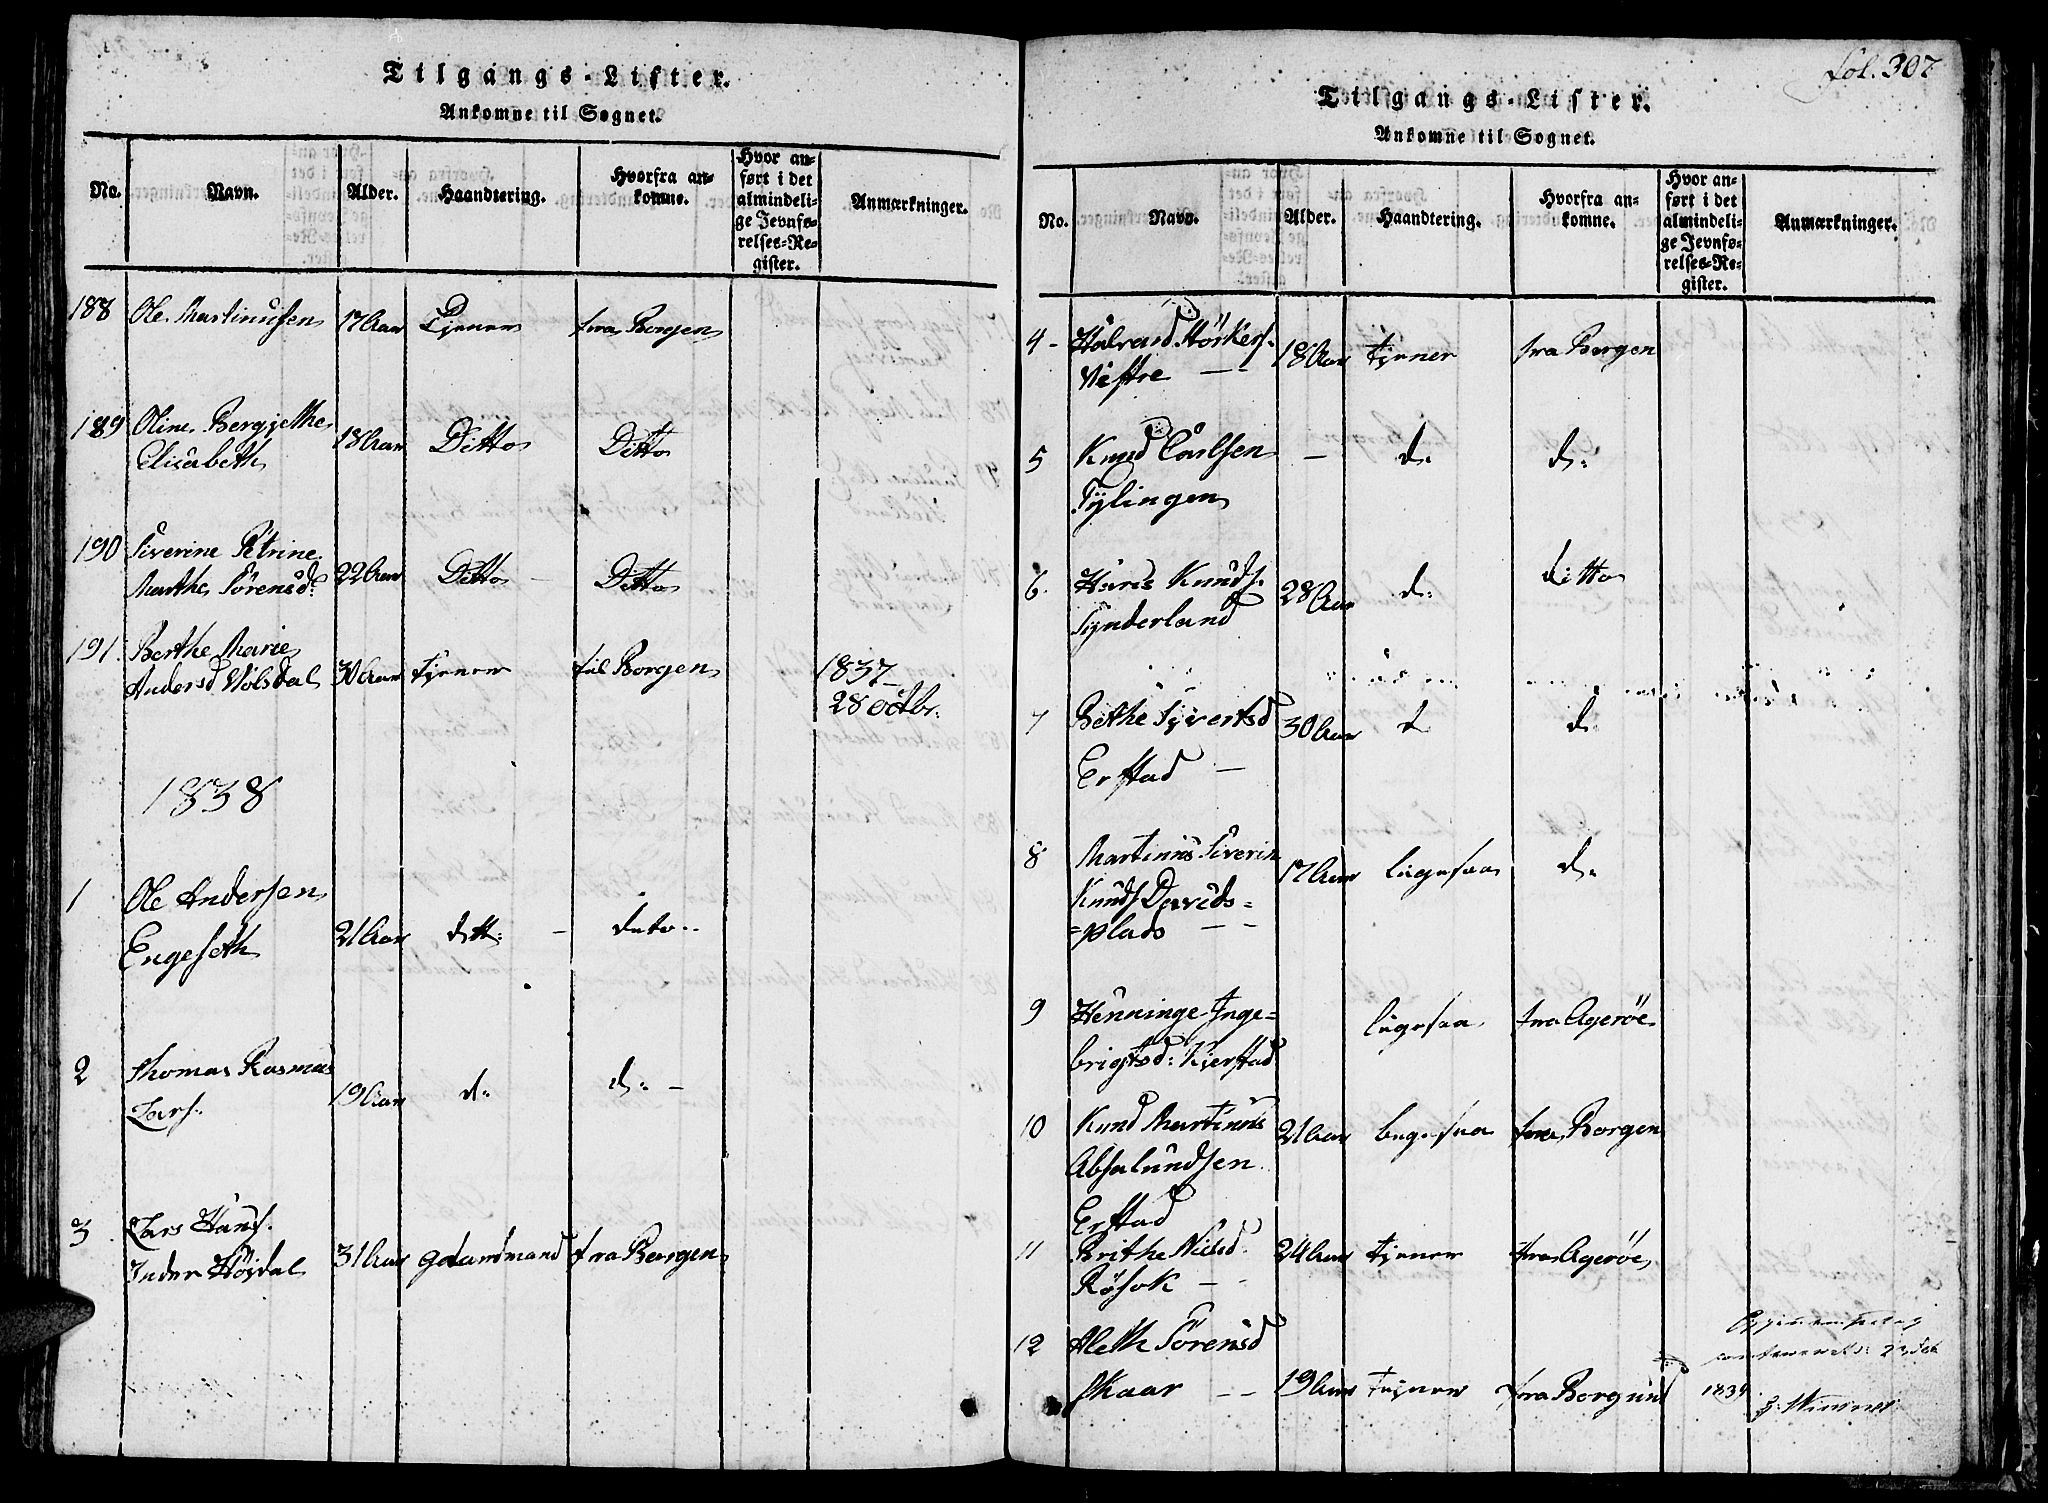 Tilgangs-Lister.
Ankomne til Sognet.
No.
Navn.
Alder.
Haandtering.
Hvorfra an-
komne.
Hvor an-
ført i det
almindeli-
ge Jevnfø-
relses-Re-
gister.
Anmærkninger.
188 Ole Martinusen 17 Aar Tjener fra Bergen
189 Oline Bergjethe 18 Aar Ditto Ditto
Elisabeth
190 Siverine Petrine
Marthe Sörensd: 22 Aar Ditto - Ditto
191. Berthe Marie
Andersd Hølsdal 30 Aar tjener til Bergen 1837
28 Octbr.
1838
1 Ole Andersen
Engeseth 21 Aar ditt: - dito..
2 Thomas Rasmus
Lars. 19 Aar d: d: -
3 Lars Hans.
Indre Høydal 31 Aar fra Bergen
fol. 307
Tilgangs-Lister.
Ankomne til Sognet.
No.
Navn.
Alder.
Haandtering.
Hvorfra an-
komne.
Hvor an-
ført i det
almindeli-
ge Jevnfø-
relses-Re-
gister.
Anmærkninger.
4 - Halvard
Vestre - - 18 Aar tjener fra Bergen
5 Knud Carlsen - d: d:
Tylingen
6. Hans Knuds. 28 Aar d: ditto
Synderland
7 Bethe Syvertsd 30 Aar d d:
Erstad -
8 Martinus Siverin
Knuds Davids= 17 Aar ligesaa d:
=plads - -
9 Henninge Inge=
brigtsd: Kierstad ligesaa fra Agerøe
10 Knud Martinus 21 Aar ligesaa fra Bergen
Absalundsen
Erstad
11 Brithe Nielsd. 24 Aar tjener fra Agerøe
Røsok - -
12 Aleth Sörensd
Skaar - - 19 Aar tjener fra Borgund 1839